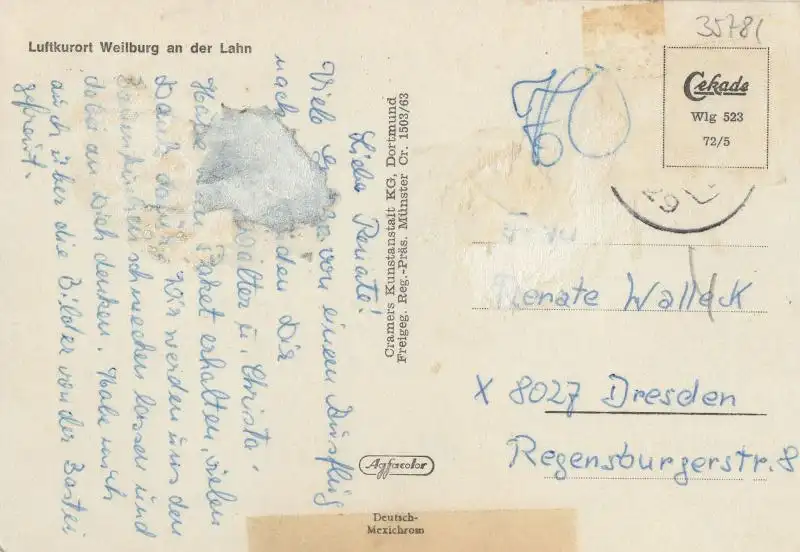 Luftkurort Weilburg an der Lahn
Liebe Renate!
Viele von einem Ausflug
nach den Dir
Walter u. Christa.
Heute Paket erhalten, vielen
Dank dafür. Wir werden uns den
schmecken lassen und
dabei an Dich denken. Habe mich
auch über die Bilder von der Bastei
gefreut.
Cramers Kunstanstalt KG, Dortmund
Freigeg. Reg.-Präs. Münster Cr. 1503/63
Agfacolor
Deutsch-
Mexichrom
35781
Cekade
Wlg 523
72/5
29
Frau
Renate Walleck
X 8027 Dresden
Regensburgerstr. 8